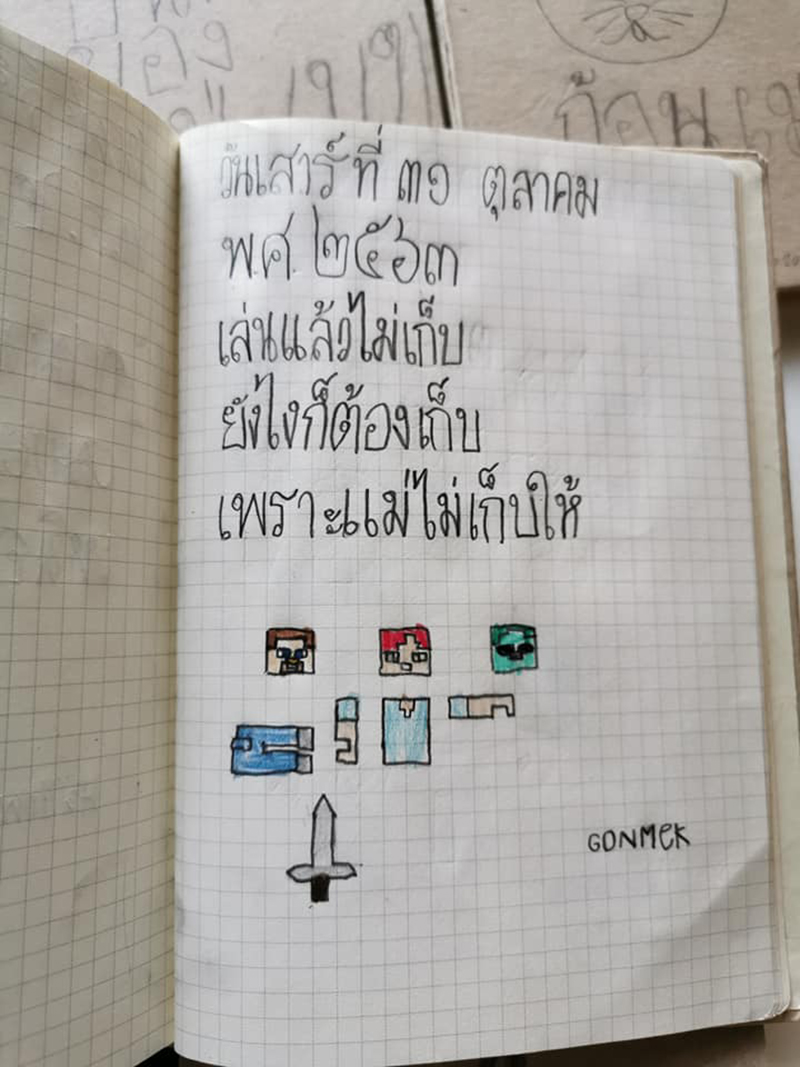 ของ
ก้อนเม
วันเสาร์ที่ ๓๑ ตุลาคม
พ.ศ. ๒๕๖๓
เล่นแล้วไม่เก็บ
ยังไงก็ต้องเก็บ
เพราะแม่ไม่เก็บให้
GONMEK